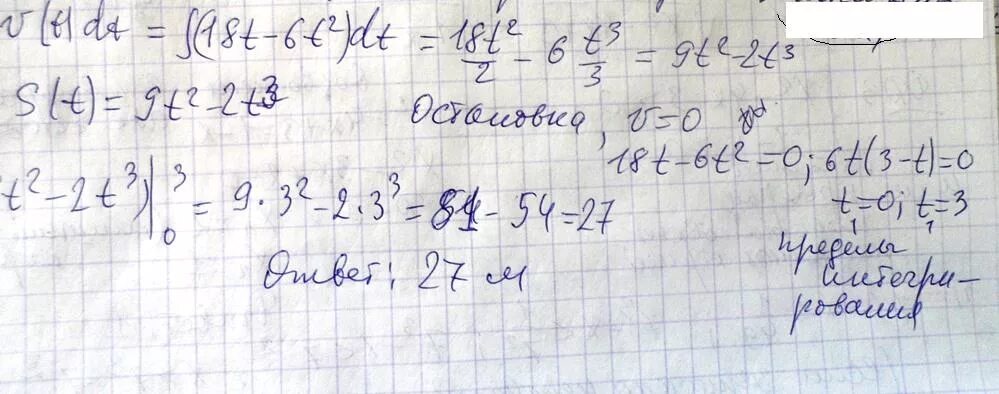 v(t)dt = ∫(18t-6t²)dt = 18t²/2 - 6 t³/3 = 9t²-2t³
S(t) = 9t²-2t³
Остановка, v=0
18t-6t²=0; 6t(3-t)=0
t=0; t=3
t²-2t³)|₀³ = 9·3²-2·3³= 81-54=27
пределы
интегри-
рования
Ответ: 27 м